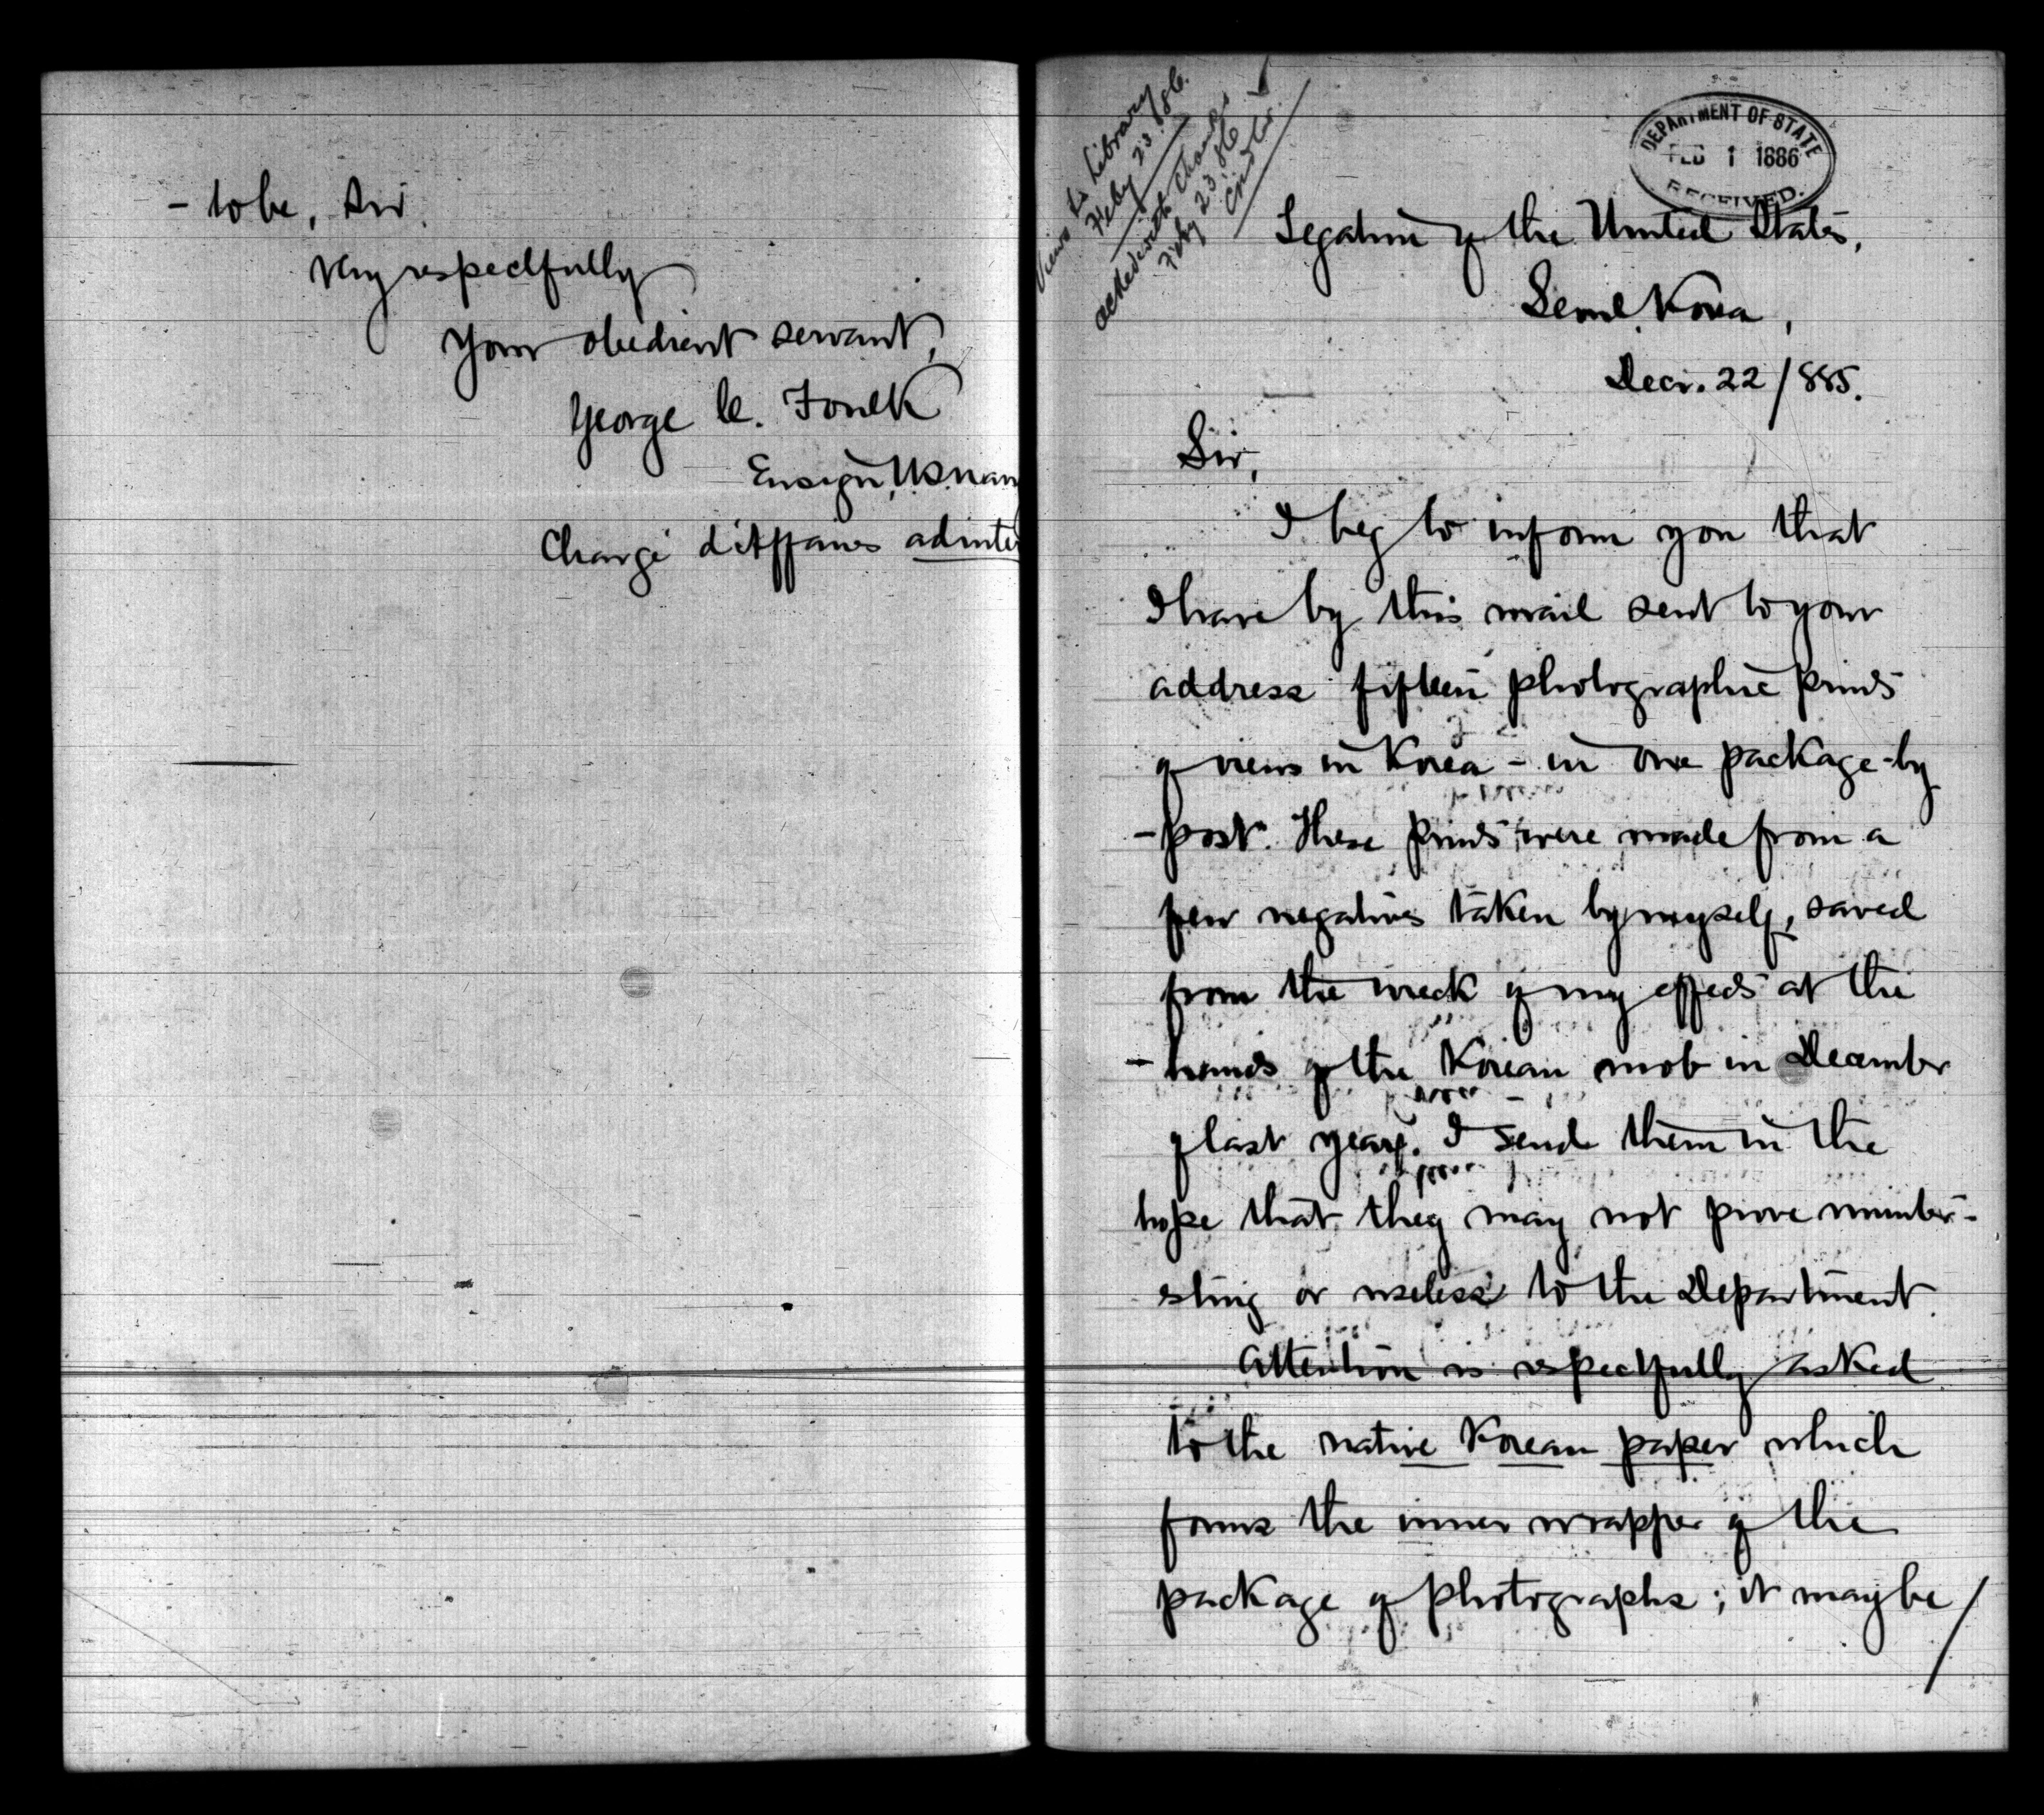 - to be, Sir,
Very respectfully
Your obedient servant,
George C. Foulk
Ensign, U.S. Navy
Chargé d'Affaires ad inter
Views to Library
Feby 23. '86.
acked with thanks
Feby 23. '86
DEPARTMENT OF STATE
FEB 1 1886
RECEIVED.
Legation of the United States,
Seoul, Korea,
Decr. 22 / 1885.
Sir,
I beg to inform you that
I have by this mail sent to your
address fifteen photographic prints
of views in Korea - in one package - by
- post. These prints were made from a
few negatives taken by myself, saved
from the wreck of my effects at the
- hands of the Korean mob in December
of last year. I send them in the
hope that they may not prove uninter-
esting or useless to the Department.
Attention is respectfully asked
to the native Korean paper which
forms the inner wrapper of the
package of photographs; it may be /